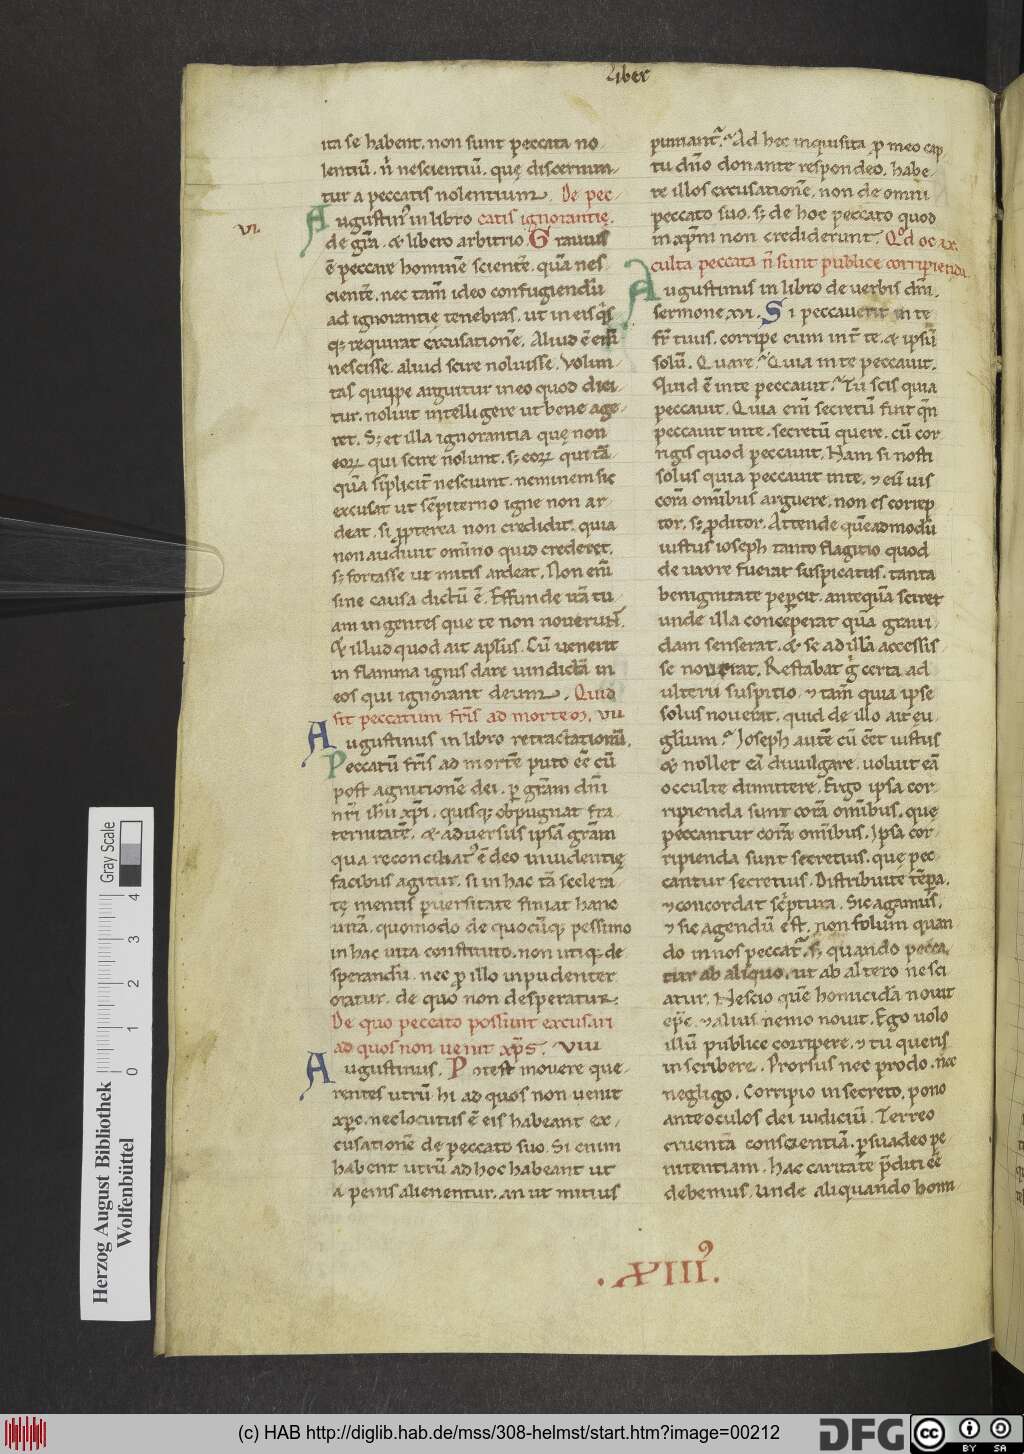 Liber
ita se habent. non sunt peccata no
lentiū. n̄ nescientiū. quę discernun-
tur a peccatis nolentium. De pec-
Augustin᷒ in libro catis ignorantię.
VI.
de gr̄a. & libero arbitrio. Grauius
ē peccare hominē scientē. quā nes-
cientē. nec tam̄ ideo confugiendū
ad ignorantię tenebras. ut in eis q̄s
q; requirat excusationē. Aliud ē eni᷒
nescisse. aliud scire noluisse. Volun-
tas quippe arguitur in eo quod dici-
tur. noluit intelligere ut bene age-
ret. S; et illa ignorantia quę non
eoꝝ qui scire nolunt. s; eoꝝ qui tā-
quā sīplicit᷒ nesciunt. neminem sic
excusat ut sēpiterno igne non ar-
deat. si ꝓpterea non credidit. quia
non audiuit omīno quid crederet.
s; fortasse ut mitis ardeat. Non enī
sine causa dictū ē. Effunde irā tu-
am in gentes que te non nouerunt.
& illud quod ait apl̄us. Cū uenerit
in flamma ignis dare uindictā in
eos qui ignorant deum. Quid
sit peccatum fr̄is ad mortem. VII
Augustinus in libro retractationū.
Peccatū fr̄is ad mortē puto eē cū
post agnitionē dei. ꝑ gr̄am dn̄i
nr̄i ihū xp̄i. quisq; obpugnat fra
ternitatē. & aduersus ipsā gr̄am
qua reconciliat᷒ ē deo inuidentię
facibus agitur. si in hac tā scelera-
tę mentis ꝑuersitate finiat hanc
uitā. quomodo de quocūq; pessimo
in hac uita constituto. non utiq; de
sperandū. nec ꝓ illo inpudenter
oratur. de quo non desperatur.
De quo peccato possunt excusari
ad quos non uenit xp̄s. VIII
Augustinus. Potest mouere que-
rentes utrū hi ad quos non uenit
xp̄c. nec locutus ē eis habeant ex-
cusationē de peccato suo. Si enim
habent utrū ad hoc habeant ut
a penis alienentur. an ut mitius
puniant᷒. Ad hec inquisita ꝓ meo cap
tu dn̄o donante respondeo. habe-
re illos excusationē. non de omni
peccato suo. s; de hoc peccato quod
in xp̄m non crediderunt. Qd oc IX.
culta peccata n̄ sunt publice corripienda
Augustinus in libro de uerbis dn̄i.
sermone XVI. Si peccauerit in te
fr̄ tuus. corripe eum int̄ te. & ipsū
solū. Quare. Quia in te peccauit.
Quid ē in te peccauit. Tu scis quia
peccauit. Quia enī secretū fuit qn̄
peccauit in te. secretū quere. cū cor
rigis quod peccauit. Nam si nosti
solus quia peccauit in te. & eū uis
corā omībus arguere. non es correp
tor. s; ꝓditor. Attende quēadmodū
iustus ioseph tanto flagitio quod
de uxore fuerat suspicatus. tanta
benignitate peꝑcit. antequā sciret
unde illa conceperat quā graui
dam senserat. & se ad illā accessis
se nouerat. Restabat ḡ certa ad
ulterii suspitio. & tam̄ quia ipse
solus nouerat. quid de illo ait eu-
gl̄ium. Ioseph autē cū eēt iustus
& nollet eā diuulgare. uoluit eā
occulte dimittere. Ergo ipsa cor-
ripienda sunt corā omībus. que
peccantur corā omībus. Ipsa cor-
ripienda sunt secretius. que pec-
cantur secretius. Distribuite tēpa.
& concordat sc̄ptura. Sic agamus.
& sic agendū est. non solum quan
do in nos peccat᷒. s; quando pecca-
tur ab aliquo. ut ab altero nesci
atur. Nescio quē homicidā nouit
ep̄c. & alius nemo nouit. Ego uolo
illū publice corripere. & tu queris
inscribere. Prorsus nec prodo. nec
negligo. Corripio in secreto. pono
ante oculos dei iudiciū. Terreo
cruentā conscientiā. ꝑsuadeo pe
nitentiam. hac caritate p̄diti eē
debemus. Unde aliquando homi
.XIII᷒.
Herzog August Bibliothek
Wolfenbüttel
Gray Scale
0 1 2 3 4
(c) HAB http://diglib.hab.de/mss/308-helmst/start.htm?image=00212
DFG
cc
BY SA